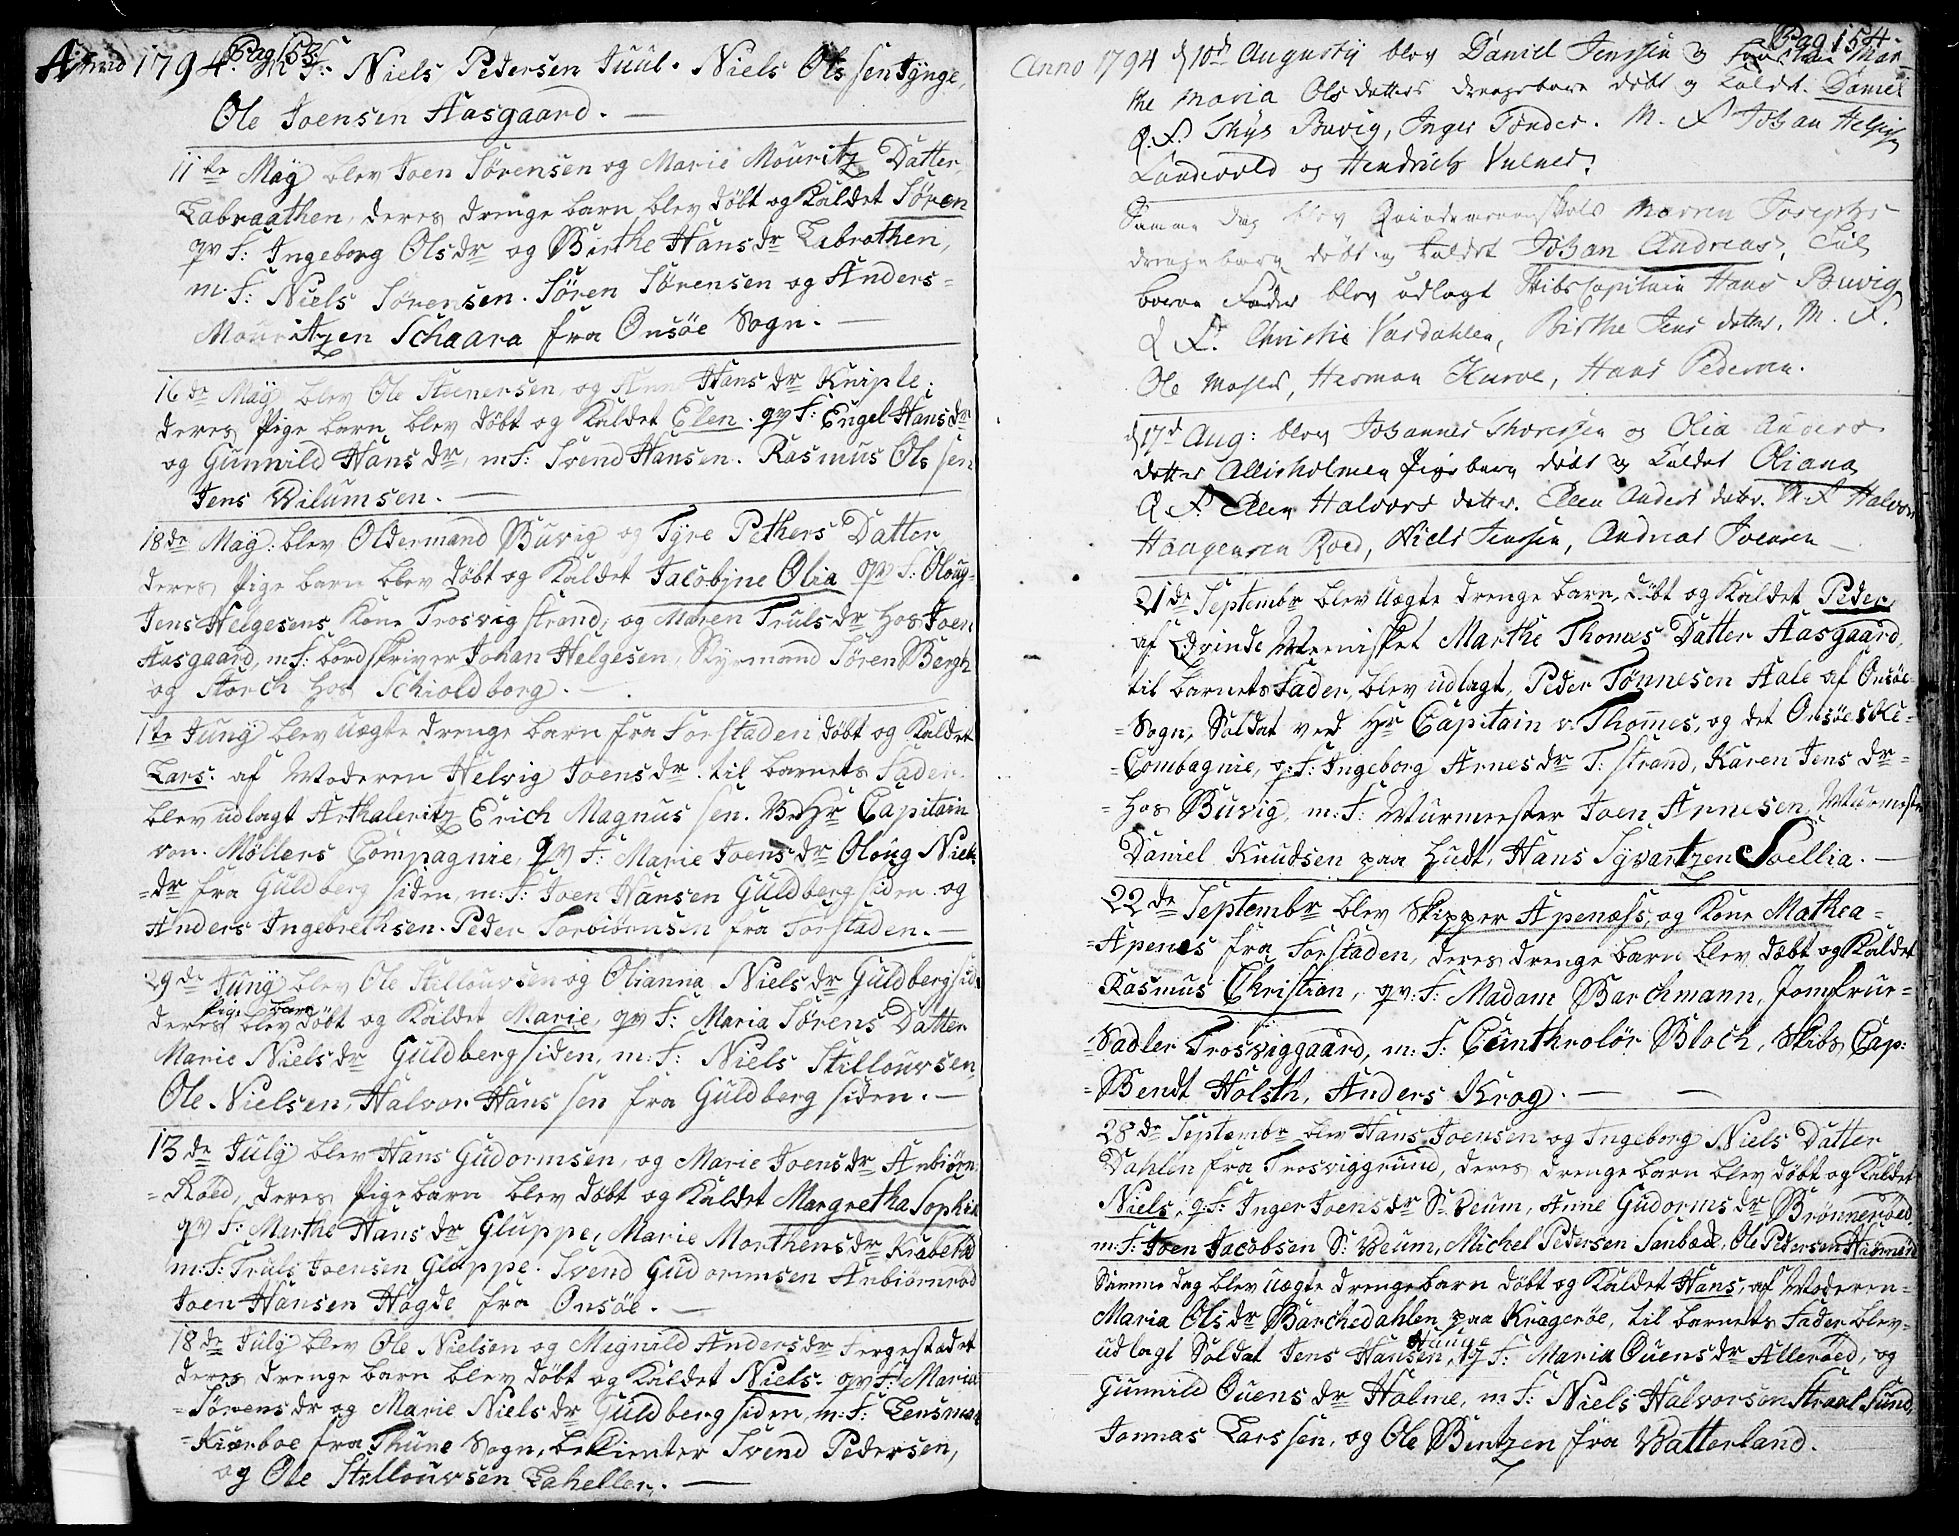 Anno 1794. Pag 153.
M: F: Niels Pedersen Juul. Niels Ols sen Tynge,
Ole Joensen Aasgaard. —
11te Maÿ blev Joen Sørensen og Marie Mouritz Datter,
Labraathen, deres drenge barn blev døbt og Kaldet Søren
qv F: Ingeborg Olsdr og Birthe Hansdr Labrathen,
m. F: Niels Sørensen. Søren Sørensen og Anders=
Mouritzen Schaara fra Onsøe Sogn. —
16de Maÿ blev Ole Stenersen, og Anne Hansdr Kniple.
deres Pige barn blev døbt og Kaldet Elen. qv F: Engel Hansdr
og Gunnild Hansdr, m F: Svend Hansen. Rasmus Ols sen
Jens Wilumsen. —
18de Maÿ: blev Oldermand Buvig og Tyre Pethers Datter
deres Pige barn blev døbt og Kaldet Jacobine Olia qv F: Oloug
Jens Helgesens Kone Trosvig strand, og Maren Truls dr hos Joen
Aasgaard, m F: bordskriver Johan Helgesen, Styrmand Søren Bergh
og Storch hos Schioldborg. —
1te Junÿ blev Uægte drenge barn fra Forstaden døbt og Kaldet
Lars. af Moderen Helvig Joens dr. til barnets Fader
blev udlagt Arthaleritz Erich Magnus sen. V. Hr Capitain
von. Møllers Compagnie, qv F: Marie Joens dr Oloug Niels
=dr fra Guldberg siden, m: F: Joen Hansen Guldberg siden og
Anders Ingebrethsen. Peder Torbiørnsen fra Forstaden. —
29de Junÿ blev Ole Stillouvsen og Olianna Niels dr Guldbergsid
Pige barn
deres blev døbt og Kaldet Marie, qv F: Maria Sørens Datter
Marie Niels dr Guldberg siden, m: F: Niels Stillouvsen,
Ole Nielsen, Halvor Hans sen fra Guldberg siden. —
13de Julÿ blev Hans Gudormsen, og Marie Joens dr Anbiørn
=Røed, deres Pige barn blev døbt og Kaldet Margretha Sophia
qv F: Marthe Hans dr Gluppe, Marie Morthens dr Krabelid
m: F: Truls Joensen Gluppe. Svend Gudormsen Anbiørnrød
Joen Hansen Hogde fra Onsøe. —
18de Julÿ blev Ole Nielsen og Mignild Anders dr Fergestædet
deres drenge barn blev døbt og Kaldet Niels. qv F: Maria
=Sørens dr og Marie Niels dr Guldberg siden, m: F: Lensmand
=Kiærboe fra Thune Sogn, beklienter Svend Pedersen,
og Ole Stillouvsen Laheller. —
Pag 154
Anno 1794 d 10d Augustij blev Daniel Jenssen og Mar-
the Maria Olsdatters drengebarn døbt og kaldt. Daniel
Q. F. Thys Buvig, Inger Tønder. M. F. Johan Helges
Landevold og Hendrich Vulner.
Samme dag blev Qvindemenniskets Marren Josephs
drengebarn døbt og kaldet Johan Andreas, til
barne Fader blev udlagt Skibscapitain Hans Buvig
Q F. Christie Vardahlen, Birthe Jens datter. M. F.
Ole Moses, Herman Kurve, Hans Pedersen.
d 17d Aug: blev Johannes Thoressen og Olia Anders
datter Allisholmen pigebarn døbt og kaldet Oliana
Q. F. Elen Halvors datter. Elen Anders dater. M. F Halvor
Haagensen Roed, Niels Jenssen, Andreas Joensen —
21de Septembr blev Uægte drenge barn, døbt og Kaldet Peder,
af Qvinde Mennisket Marthe Thomes Datter Aasgaard,
til barnets Fader, blev udlagt, Peder Tønnesen Aale af Onsøe
=Sogn, Soldat ved Hr Capitain v. Thomes, og det Onsøeske=
=Combagnie, q: F: Ingeborg Arnes dr T: strand, Karen Jens dr=
=hos Buvig, m: F: Murmester Joen Arnesen, Murmester
Daniel Knudsen paa Hudt, Hans Syvartzen Soellia. —
22de Septembr blev Skipper Apenæss, og Kone Mathea=
=Apenes fra Forstaden, deres drenge barn blev døbt og Kaldet
Rasmus Christian, qv: F: Madam Barchmann, Jomfrue=
=Sadler Trosviggaard, m: F: Cunthrolør Bloch, Skibs Cap:
=Bendt Holsth, Anders Krog. — —
28de Septembr blev Hans Joensen og Ingeborg Niels Datter
Dahlen fra Trosviggrund, deres drenge barn blev døbt og Kaldet
Niels, q: F: Inger Joens dr S. Veum, Anne Gudorms dr Brønnerøed,
m: F: Joen Jacobsen S: Veum, Michel Pedersen Sanbæck, Ole Pedersen
Samme dag blev Uægte drengebarn døbt og Kaldet Hans, af Moderen=
Maria Ols dr Barchedahlen paa Kragerøe, til barnets Fader blev=
udlagt Soldat Jens Hansen Hauge, q F: Maria Ouens dr Allerøed, og
Gunnild Ouens dr Holme, m: F: Niels Halvorsen Straalsund,
Jonnas Larssen, og Ole Bentzen fra Watterland.